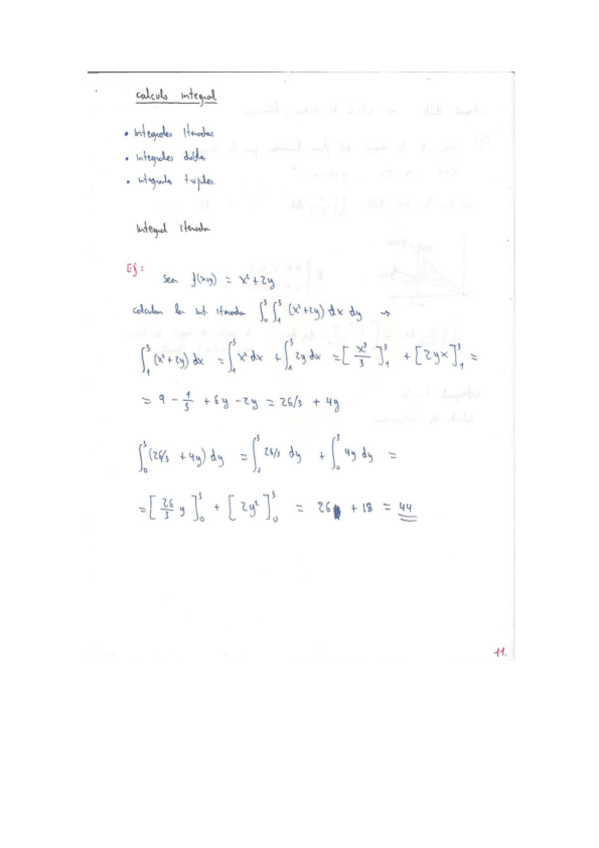 calculo integral
• integrales iteradas
• integrales dobles
• integrales triples.
Integral iterada
Ej:
sea f(x,y) = x² + 2y
calcular la int. iterada ∫₀³ ∫₁³ (x² + 2y) dx dy →
∫₁³ (x² + 2y) dx = ∫₁³ x² dx + ∫₁³ 2y dx = [x³/3]₁³ + [2yx]₁³ =
= 9 - 1/3 + 6y - 2y = 26/3 + 4y
∫₀³ (26/3 + 4y) dy = ∫₀³ 26/3 dy + ∫₀³ 4y dy =
= [26/3 y]₀³ + [2y²]₀³ = 26 + 18 = 44
11.